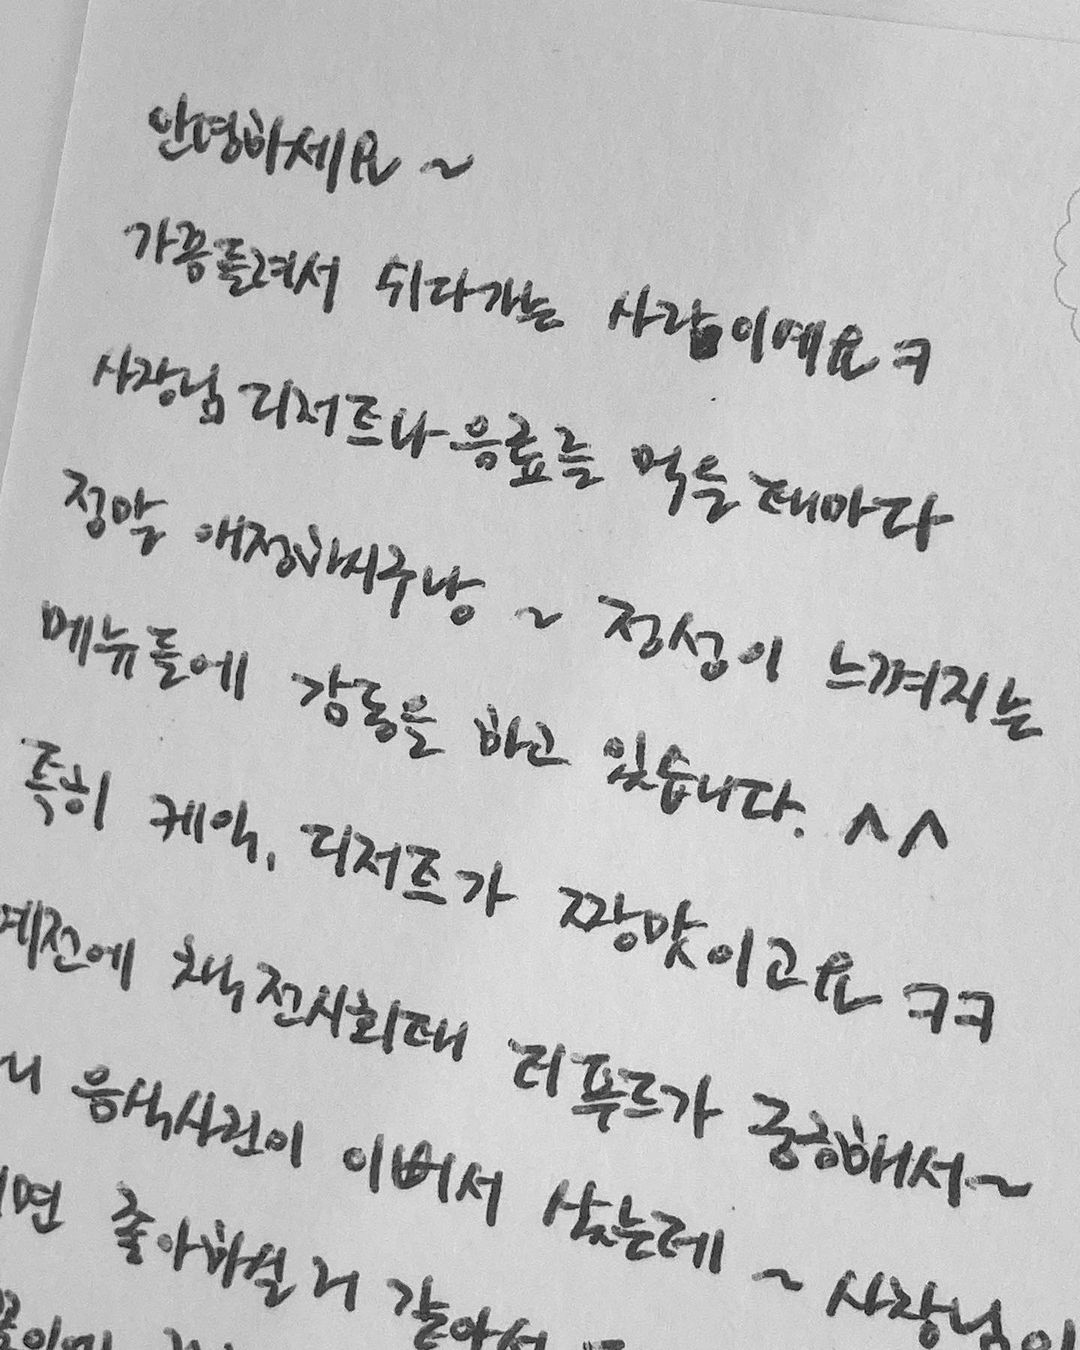 안녕하세요 ~
가끔들려서 쉬다가는 사람이예요 ㅋ
사장님 디저트나 음료를 먹을때마다
정말 애정하시구낭 ~ 정성이 느껴지는
메뉴들에 감동을 하고 있습니다. ^^
특히 케익, 디저트가 짱맛이고요 ㅋㅋ
예전에 책전시회때 티푸드가 궁금해서~
음식사진이 이뻐서 샀는데 ~ 사장님이
면 좋아하실 거 같아서